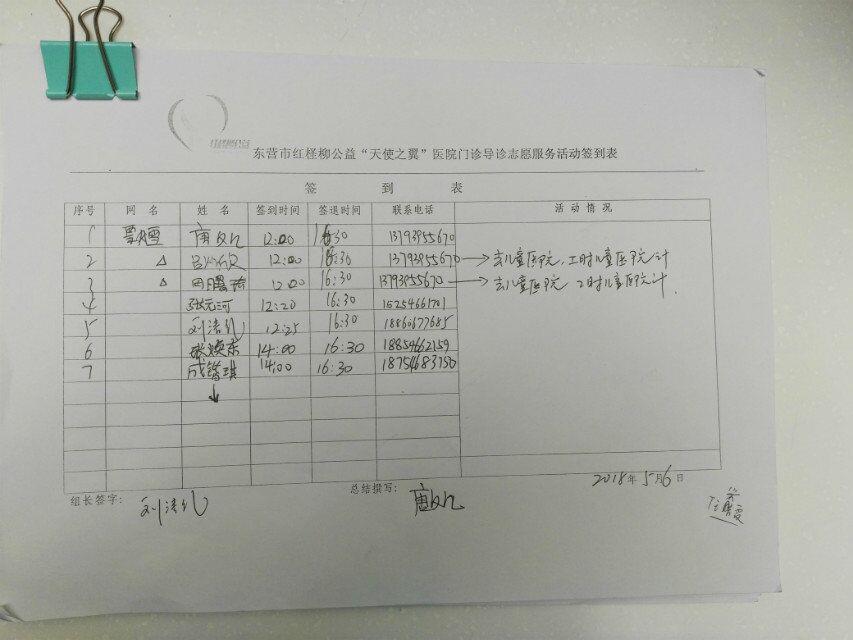 红柽柳公益
东营市红柽柳公益“天使之翼”医院门诊导诊志愿服务活动签到表
签 到 表
序号 网 名 姓 名 签到时间 签退时间 联系电话 活 动 情 况
1 唐文儿 12:00 16:30 13793955670
2 △ 12:00 16:30 13793955670 → 去儿童医院,工时儿童医院计
3 △ 12:00 16:30 13793955670 → 去儿童医院 工时儿童医院计
4 张元河 12:20 16:30 15254661701
5 刘洁礼 12:25 16:30 18860677685
6 张焕东 14:00 16:30 18854662159
7 14:00 16:30 18754683750
↓
2018年5月6日
组长签字: 刘洁礼 总结撰写: 唐文儿